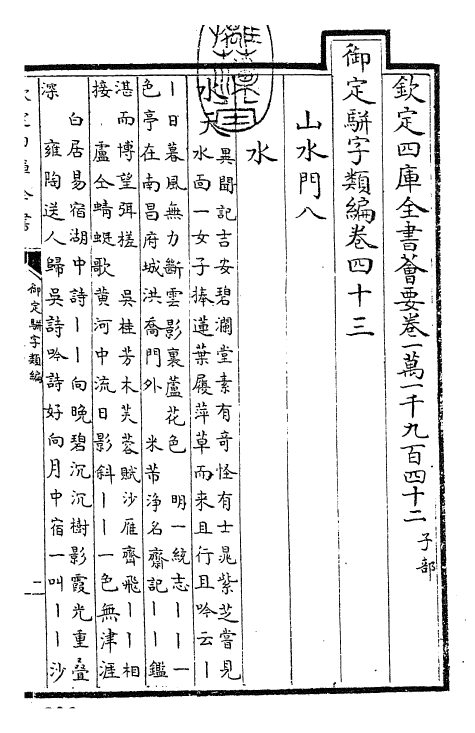 欽定四庫全書薈要卷一萬一千九百四十二 子部
御定駢字類編卷四十三
山水門八
水
水天 異聞記吉安碧瀾堂素有奇怪有士晁紫芝嘗見
水面一女子捧蓮葉履萍草而来且行且吟云丨
丨日暮風無力斷雲影裏蘆花色 明一統志丨丨一
色亭在南昌府城洪喬門外 米芾浄名齋記丨丨鑑
湛而博望弭槎 吳桂芳木芙蓉賦沙雁齊飛丨丨相
接 盧仝蜻蜓歌黄河中流日影斜丨丨一色無津涯
白居易宿湖中詩丨丨向晚碧沉沉樹影霞光重疊
深 雍陶送人歸吳詩吟詩好向月中宿一叫丨丨沙
御定駢字類編
一